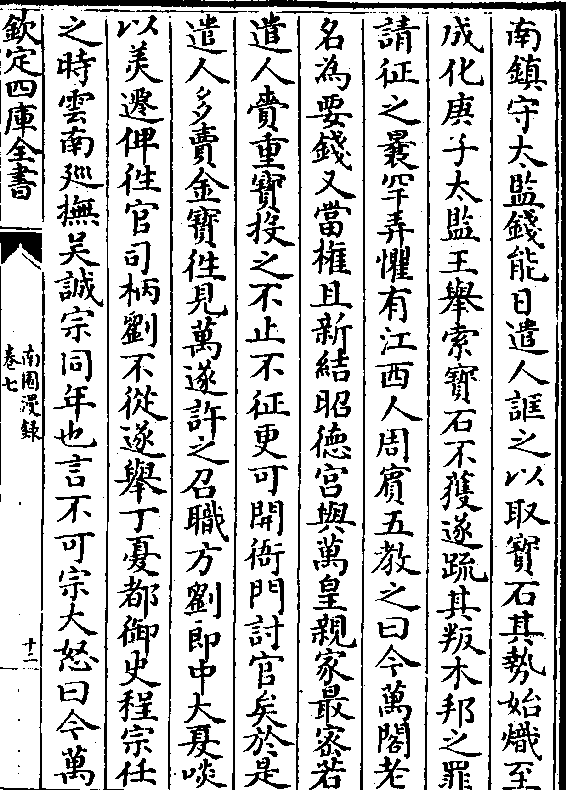 南鎮守太監錢能日遣人誆之以取寳石其勢始熾至
成化庚子太監王舉索寳石不獲遂疏其叛木邦之罪
請征之曩罕弄懼有江西人周賓五教之曰今萬閣老
名為要錢又當權且新結昭德宫與萬皇親家最宻若
遣人賫重寳投之不止不征更可開衙門討官矣於是
遣人多賫金寳徃見萬遂許之召職方劉郎中大夏啖
以美遷俾徃官司柄劉不從遂舉丁憂都御史程宗任
之時雲南廵撫吴誠宗同年也言不可宗大怒曰今萬
欽定四庫全書
南園漫録
卷七
十二